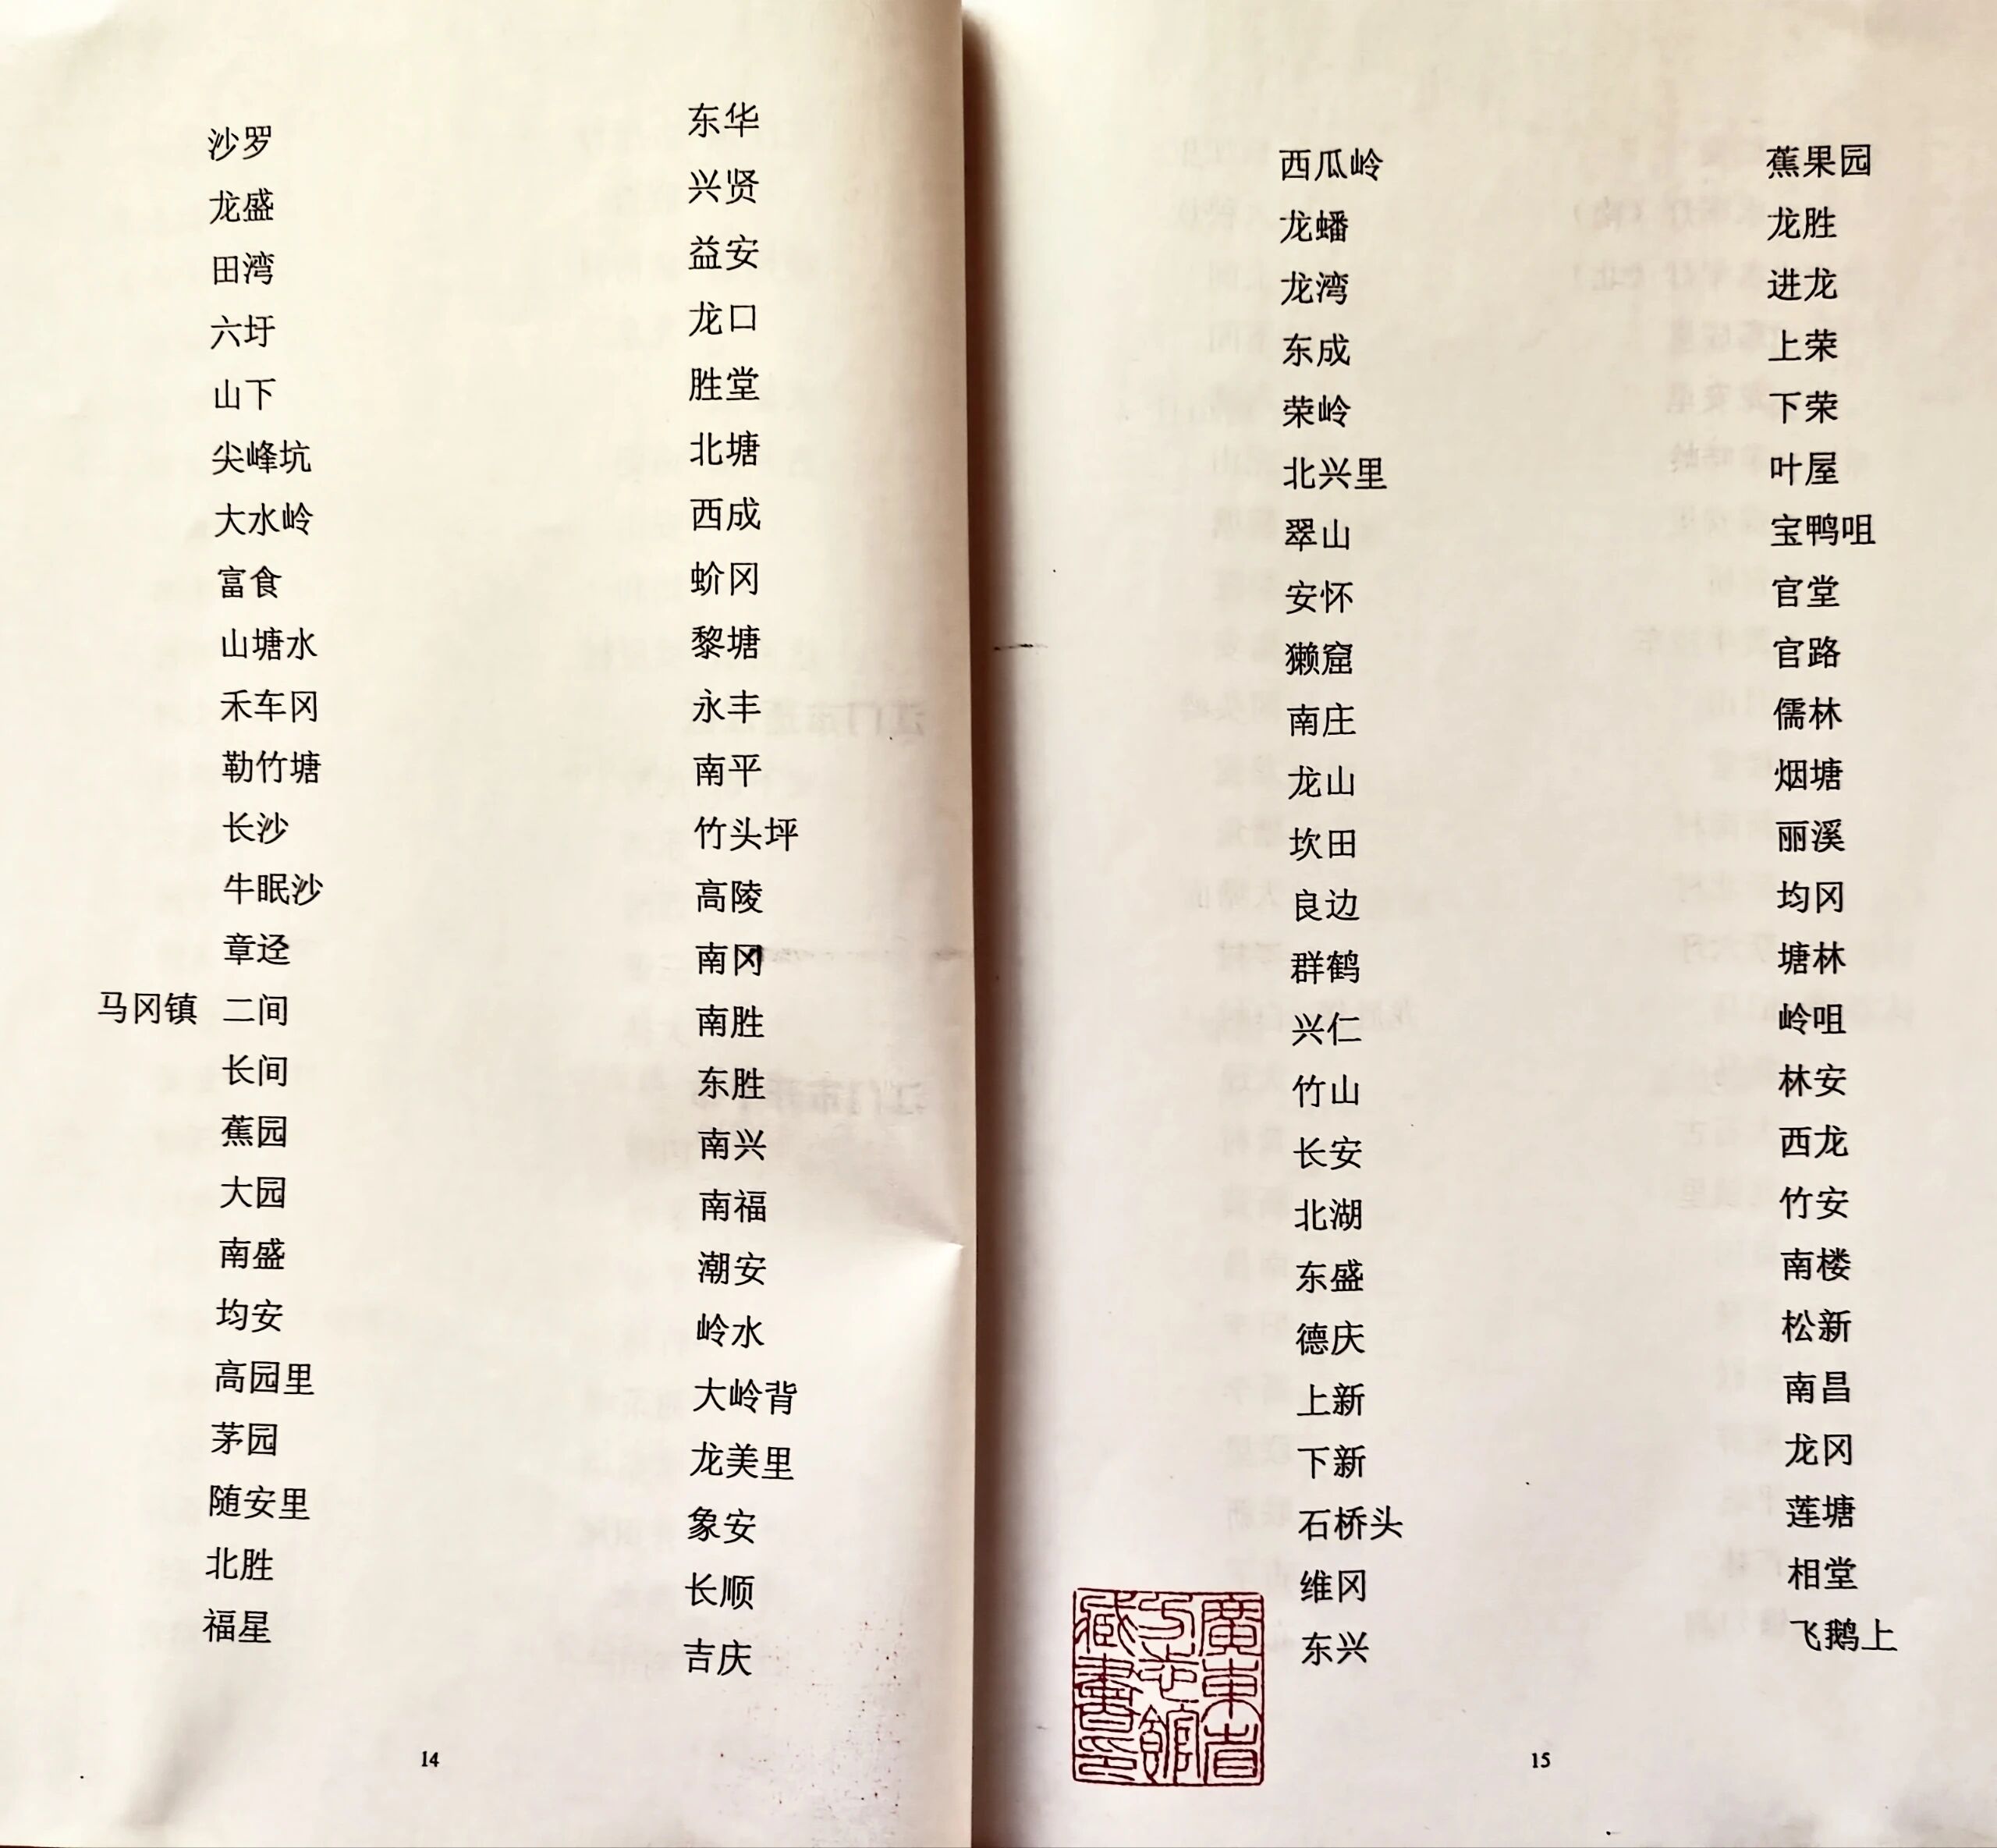 沙罗
龙盛
田湾
六圩
山下
尖峰坑
大水岭
富食
山塘水
禾车冈
勒竹塘
长沙
牛眠沙
章迳
马冈镇 二间
长间
蕉园
大园
南盛
均安
高园里
茅园
随安里
北胜
福星
东华
兴贤
益安
龙口
胜堂
北塘
西成
蚧冈
黎塘
永丰
南平
竹头坪
高陵
南冈
南胜
东胜
南兴
南福
潮安
岭水
大岭背
龙美里
象安
长顺
吉庆
14
西瓜岭
龙蟠
龙湾
东成
荣岭
北兴里
翠山
安怀
獭窟
南庄
龙山
坎田
良边
群鹤
兴仁
竹山
长安
北湖
东盛
德庆
上新
下新
石桥头
维冈
东兴
蕉果园
龙胜
进龙
上荣
下荣
叶屋
宝鸭咀
官堂
官路
儒林
烟塘
丽溪
均冈
塘林
岭咀
林安
西龙
竹安
南楼
松新
南昌
龙冈
莲塘
相堂
飞鹅上
廣東省
方志館
藏書印
15